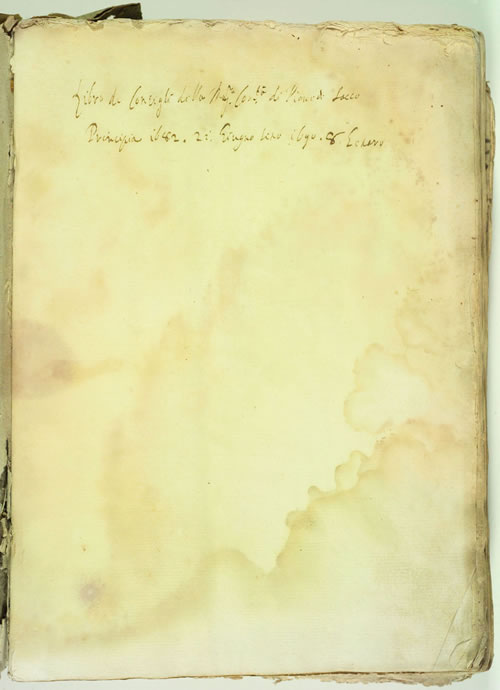 Libro de Consegli della Mag.ca Com.tà di Piove di Sacco
Principia 1682. 2: Giugno sino 1690. 8 Genaro